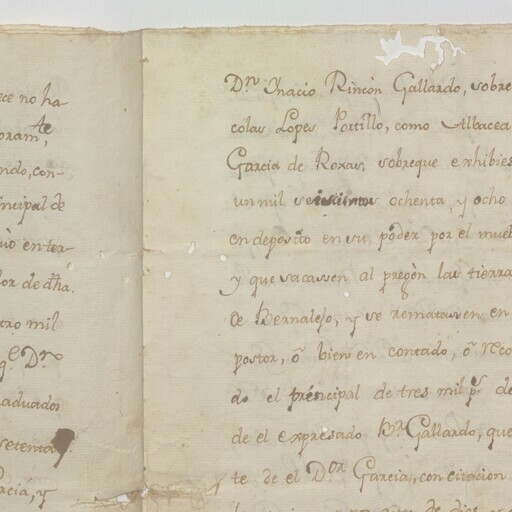 ece no ha
oram,te
ndo, con-
incipal de
uió en ter-
or de dha.
tro mil
q.e Dn
aduados
setenta
arcia, y
Dn Ynacio Rincón Gallardo, sobre
colas Lopes Portillo, como Albacea
Garcia de Roxas, sobreque exhibies
un mil seiscientos ochenta y ocho
en deposito en su poder por el mueb
y que sacassen al pregón las tierra
de Bernalejo, y se rematasen en
postor, ó bien en contado, ó reco
do el príncipal de tres mil ps. de
de el expresado Br. Gallardo, que
te de el Dor Garcia, con citacion